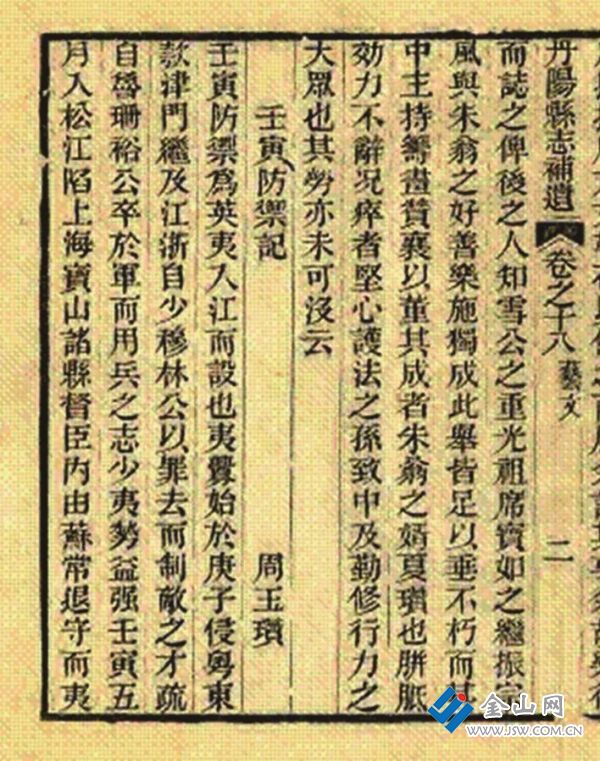 丹陽縣志補遺 卷之十八 藝文 二
而誌之俾後之人知雪公之重光祖席實如之繼振宗
風與朱翁之好善樂施獨成此舉皆足以垂不朽而其
中主持籌畫贊襄以董其成者朱翁之婿夏瓚也胼胝
効力不辭况瘁者堅心護法之孫致中及勤修行力之
大眾也其勞亦未可沒云
壬寅防禦記 周玉瓚
壬寅防禦爲英夷入江而設也夷釁始於庚子侵粤東
款津門繼及江浙自少穆林公以罪去而制敵之才疏
自魯珊裕公卒於軍而用兵之志少夷勢益强壬寅五
月入松江陷上海寶山諸縣督臣內由蘇常退守而夷
金山网
www.JSW.COM.CN